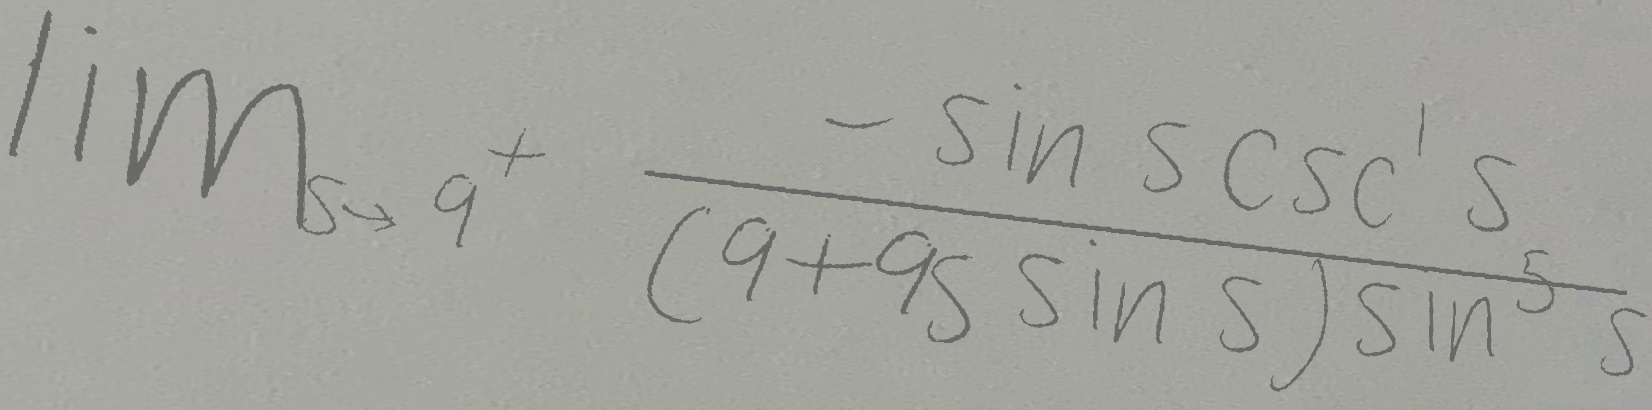 \lim_{s \to 9^+} \frac{-\sin s \csc^1 s}{(9 + 9s \sin s) \sin^5 s}